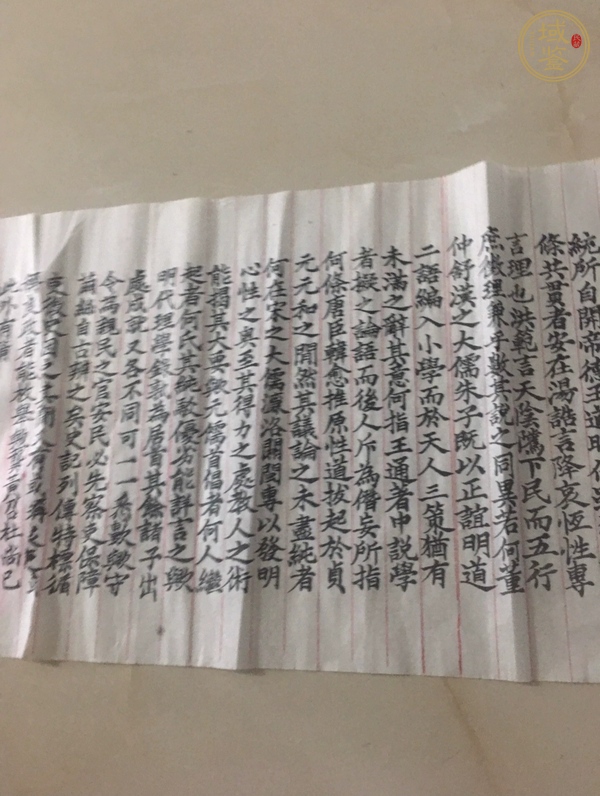 統所自開帝傳王道明
條共貫者安在湯誥言降衷恆性專
言理也洪範言天陰隲下民而五行
庶徵理兼乎數其說之同異若何董
仲舒漢之大儒朱子既以正誼明道
二語編入小學而於天人三策猶有
未滿之辭其意何指王通著中說學
者擬之論語而後人斥為僭妄所指
何條唐臣韓愈推原性道拔起於貞
元元和之間然其議論之未盡純者
何在宋之大儒濂洛關閩專以發明
心性之奧至其得力之處教人之術
能揭其大要歟元儒首倡者何人繼
起者何氏其純駁優劣能詳言之歟
明代理學錢袁為居首其餘諸子出
處成就又各不同可一一条數歟守
令為親民之官安民必先察吏保障
繭絲自古辨之矣史記列傳特標循
吏
杜尚已
外有
域鉴